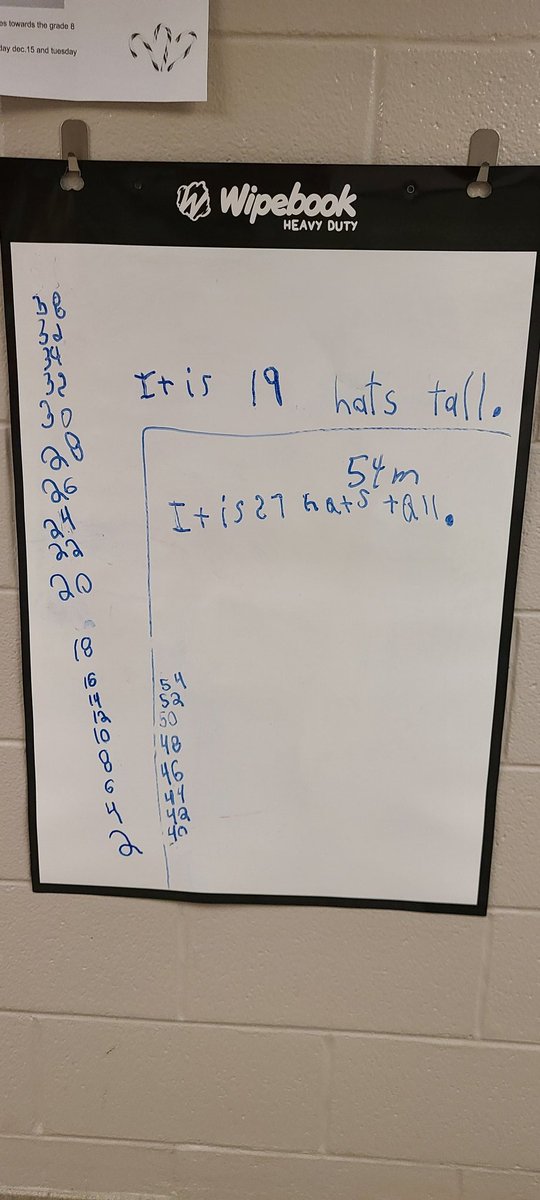 es towards the grade 8
day dec.15 and tuesday
Wipebook
HEAVY DUTY
38
32
34
32
30
28
26
24
22
20
18
16
14
12
10
8
6
4
2
It is 19 hats tall.
54m
It is 27 hats tall.
54
52
50
48
46
44
42
40